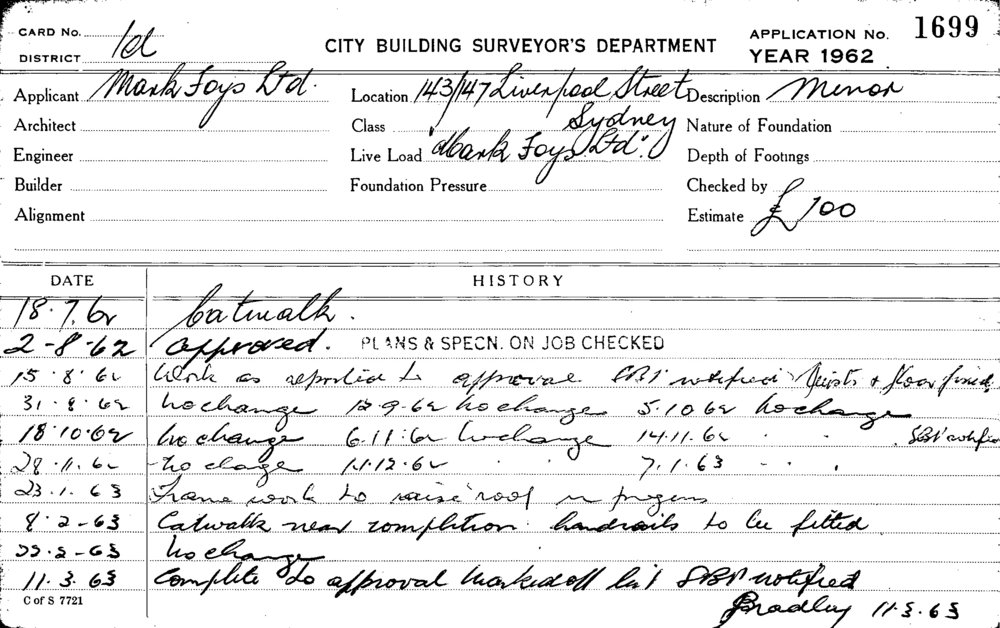 CARD No.
1699
DISTRICT 1d
CITY BUILDING SURVEYOR'S DEPARTMENT
APPLICATION No.
YEAR 1962
Applicant Mark Foys Ltd. Location 143/147 Liverpool Street Description Minor
Sydney
Architect Class Nature of Foundation
Engineer Live Load "Mark Foys Ltd". Depth of Footings
Builder Foundation Pressure Checked by
Alignment Estimate £100
DATE HISTORY
18.7.62 Catwalk.
2-8-62 approved. PLANS & SPECN. ON JOB CHECKED
15.8.62 Work as reported to approval notified Joists & floor fixed.
31.8.62 no change 12.9.62 no change 5.10.62 no change
18.10.62 no change 6.11.62 no change 14.11.62 " "
28.11.62 no change 11.12.62 " " 7.1.63 " "
23.1.63 Frame work to raise roof in progress
8.2-63 Catwalk near completion. handrails to be fitted
22.2-63 no change
11.3.63 Complete to approval Marked off list notified
C of S 7721
Bradley 11.3.63